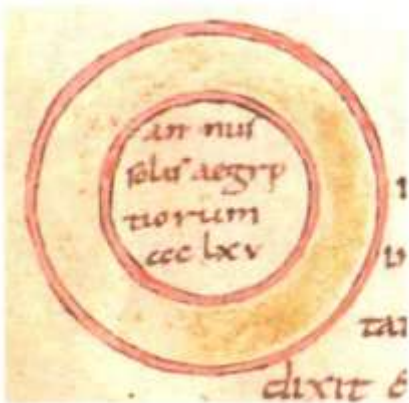 an nus
solis aegyp
tiorum
ccc lxv
tai
dixit e